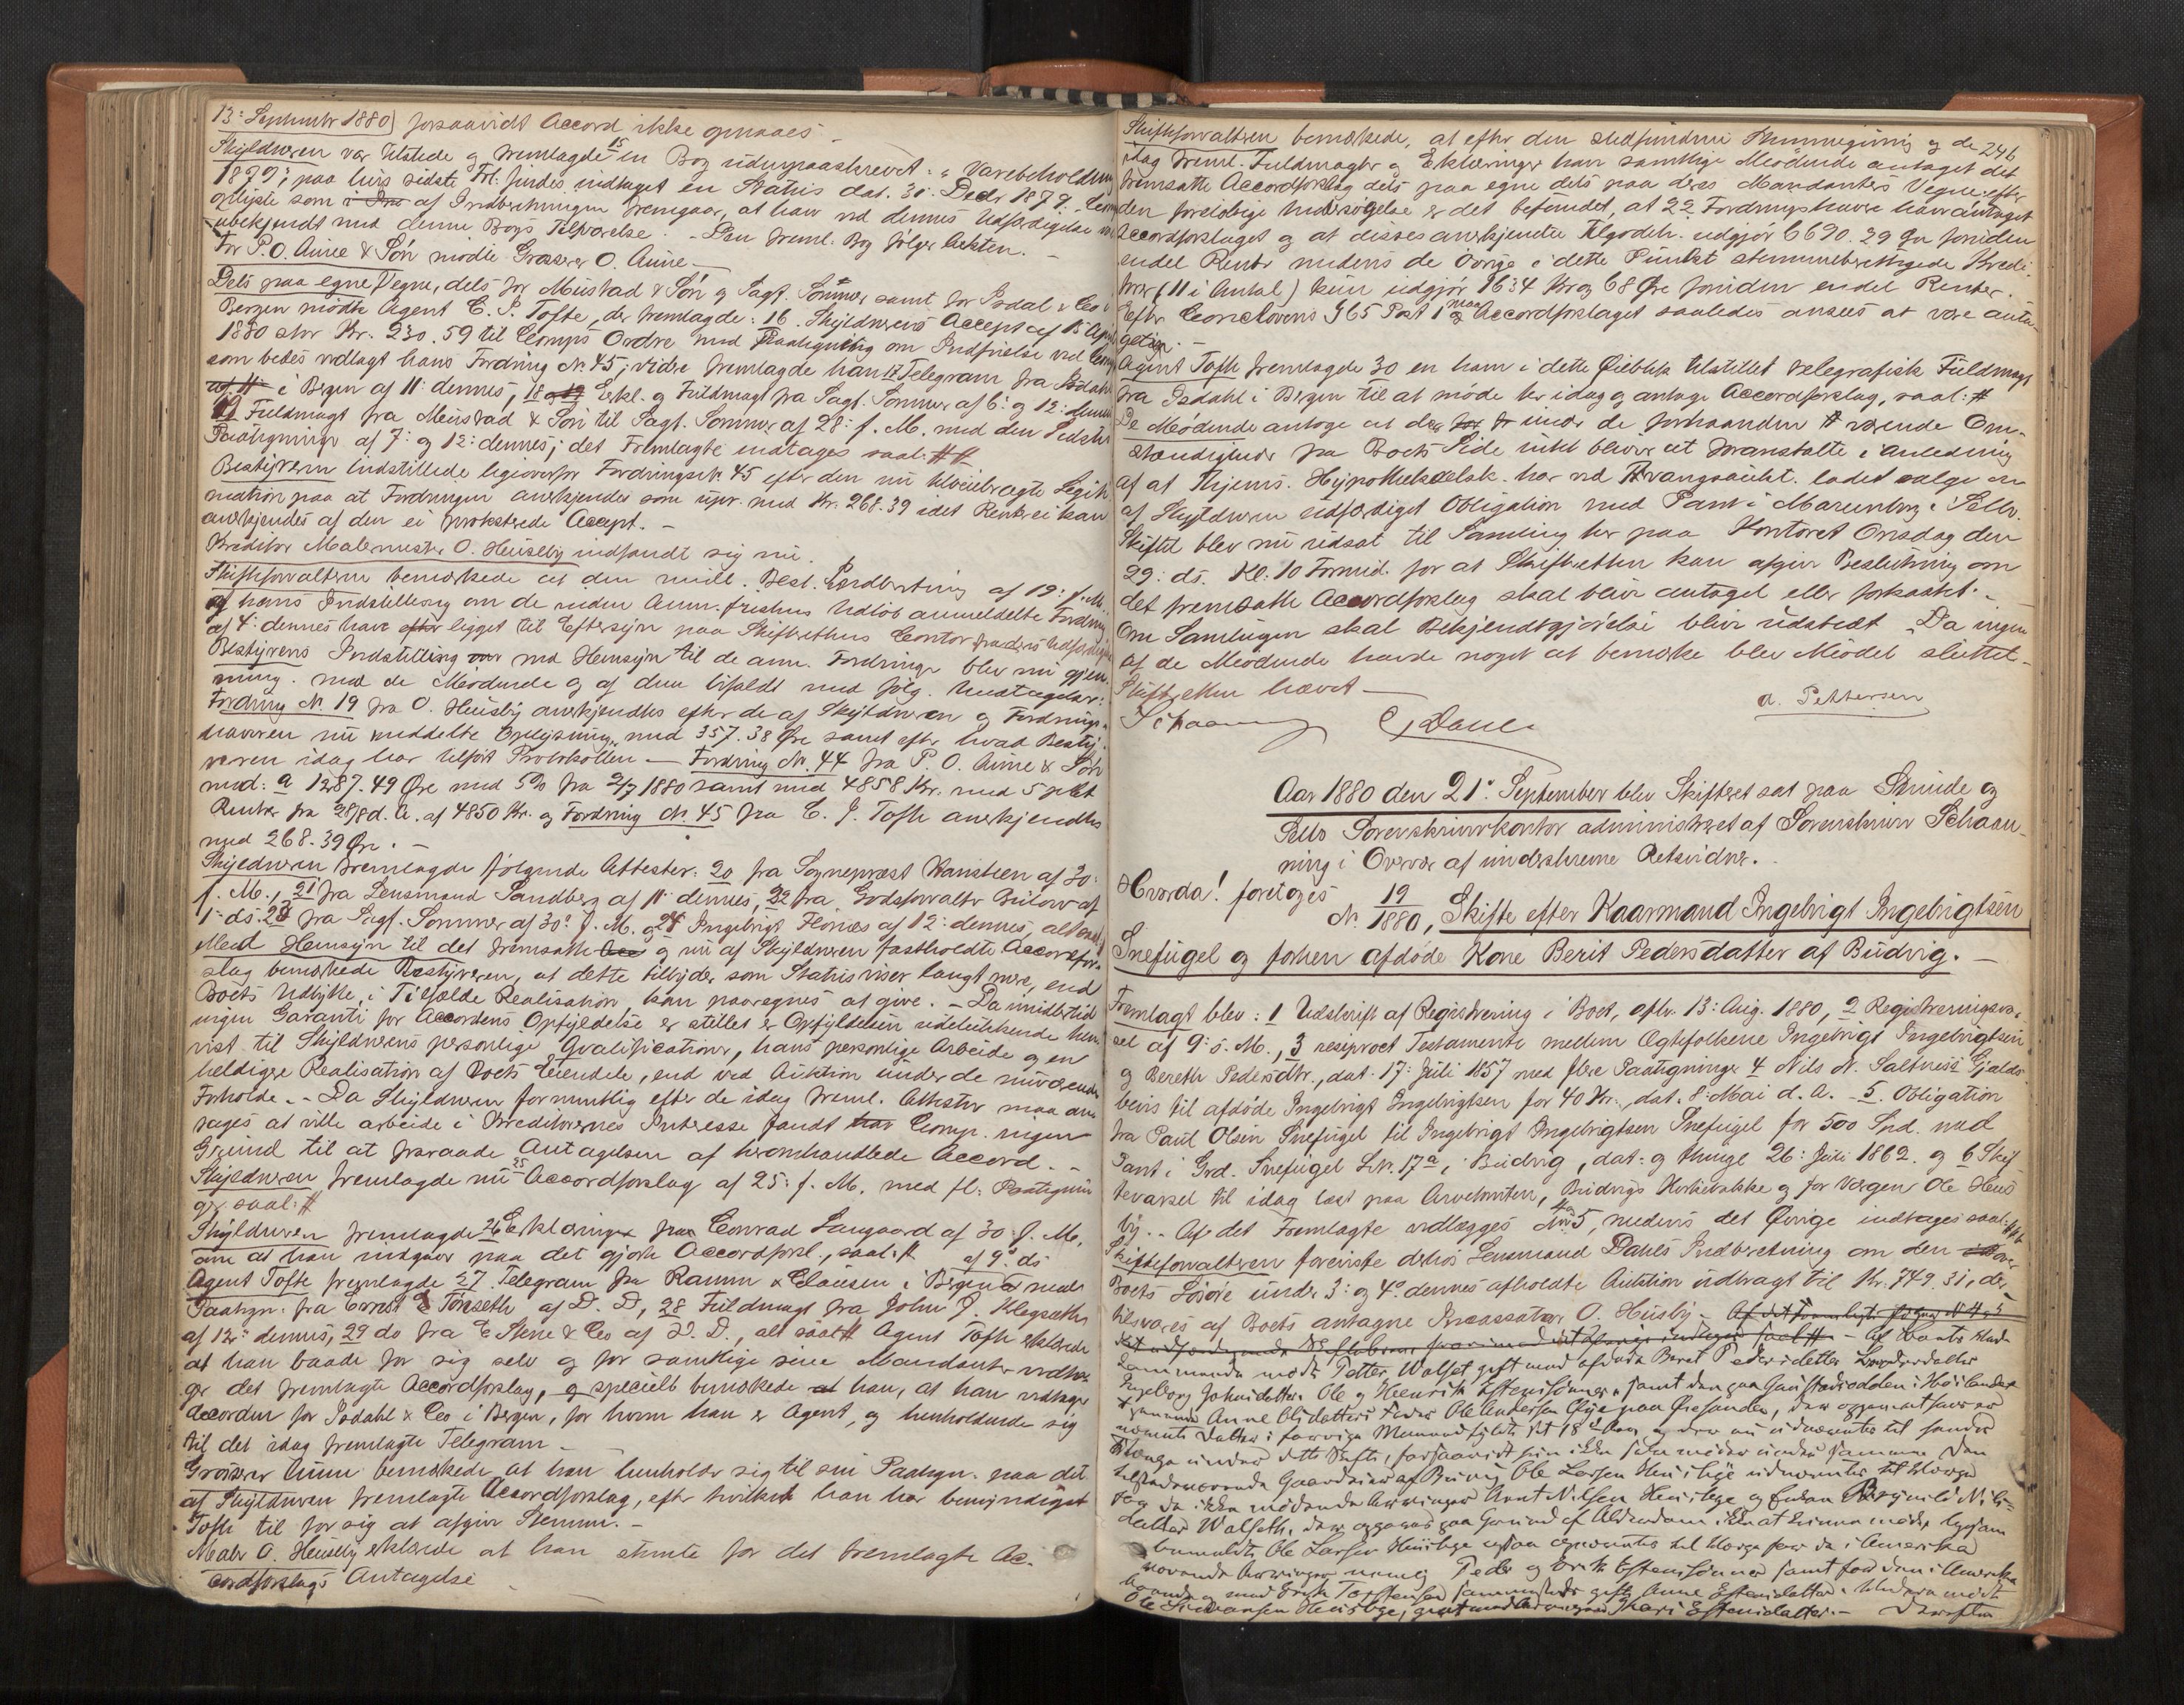 13: September 1880) forsaavidt Accord ikke opnaaes –
Skyldneren var tilstede og fremlagde 15 en Bog udenpaaskrevet: "Varebeholdning
1879", paa hvis sidste Fol. findes indtaget en Status dat. 31: Decbr 1879.
som af Indberetningen fremgaar, at have ved dennes Udfærdigelse
ubekjendt med denne Bogs Tilværelse. – Den freml. Bog følger Akten. –
For P. O. Aune & Søn mødte Grosserer O. Aune. –
Dels paa egne Vegne, dels for Mustad & Søn og Sagf. Sommer samt for Isdal & Co i
Bergen mødte Agent C. J. Tofte, der fremlagde: 16 Skyldnerens Accept af 15 April
1880 stor Kr. 230.59 til Comps Ordre med Paategning om Indfrielse ved Comp.
som bedes vedlagt hans Fordring N. 45; videre fremlagde han 17 Telegram fra Isdahl
i Bergen af 11: dennes, 18 Erkl. og Fuldmagt fra Sagf. Sommer af 6: og 12: dennes
19 Fuldmagt fra Mustad & Søn til Sagf. Sommer af 28: f. M. med den Sidstes
Paategninger af 7: og 12: dennes; det Fremlagte indtages saal: #
Bestyreren indstillede ligeoverfor Fordringen N. 45 efter den nu tilveiebragte Legiti-
mation paa at Fordringen anerkjendes som upr. med Kr. 268.39 idet Renter ei kan
anerkjendes af den ei protesterede Accept. –
Kreditor Malermester O. Heusby indfandt sig nu.
Skifteforvalteren bemærkede at den midl. Best. Indberetning af 19: f. M.
og hans Indstilling om de inden Anm. fristens Udløb anmeldelte Fordringer
af 4: dennes have ligget til Eftersyn paa Skifterettens Contor fra deres Udfærdigelse
Bestyrerens Indstilling med Hensyn til de anm. Fordringer blev nu gjen-
nemg. med de Mødende og af dem bifaldt med følg. Undtagelser:
Fordring N. 19 fra O. Heusby anerkjendtes efter de af Skyldneren og Fordrings-
haveren nu meddelte Oplysning. med 357.38 Øre samt efter hvad Besty-
reren idag har tilført Protokollen. – Fordring N. 44 fra P. O. Aune & Søn
med: a 1287.49 Øre med 5% fra 2/7 1880 samt med 4858 Kr. med 5 pCt
Renter fra 28/8 d. A. af 4850 Kr. og Fordring N. 45 fra C. J. Tofte anerkjendtes
med 268.39 Øre. –
Skyldneren fremlagde følgende Attester: 20 fra Sognepræst Wansteen af 30:
f. M., 21 fra Lensmand Sandberg af 11: dennes, 22 fra Godsforvalter Bülow af
1: ds. 23 fra Sagf. Sommer af 30: f. M. og 24 Ingebrigt Flønæs af 12: dennes,
Med Hensyn til det fremsatte og nu af Skyldneren fastholdte Accordfor-
slag bemærkede Bestyreren, at dette tilbyder som Status viser langt mere, end
Boets Udbytte, i Tilfælde Realisation, kan paaregnes at give. – Da imidlertid
ingen Garanti for Accordens Opfyldelse er stillet er Opfyldelsen udelukkende hen-
vist til Skyldnerens personlige Qvalificationer, hans personlige Arbeide og en
heldigere Realisation af Boets Eiendele, end ved Auktion under de nuværende
Forholde. – Da Skyldneren formentlig efter de idag freml. Attester maa an-
tages at ville arbeide i Kreditorernes Interesse fandt Comp. ingen
Grund til at fraraade Antagelsen af heromhandlede Accord. –
Skyldneren fremlagde nu 25 Accordforslag af 25: f. M. med fl: Paategnin-
ger saal: #
Skyldneren fremlagde 26 Erklæringer fra Conrad Langaard af 30: f. M.,
om at han indgaar paa det gjorte Accordforsl., saal: # af 9: ds
Agent Tofte fremlagde 27 Telegram fra Ramm & Clausen i Bergen med
Paategn. fra Ernst Tønseth af D. D., 28 Fuldmagt fra John J. Klegseth
af 12: dennes, 29 do fra E Stene & Co af D. D., alt saal # Agent Tofte erklærede
at han baade for sig selv og for samtlige sine Mandanter vedtog
det fremlagte Accordforslag, og specielt bemærkede han, at han vedtager
Accorden for Isdahl & Co i Bergen, for hvem han er Agent, og henholdende sig
til det idag fremlagte Telegram –
Grosserer Aune bemærkede at han henholdt sig til sin Paategn. paa det
af Skyldneren fremlagte Accordforslag, efter hvilket han har bemyndiget
Tofte til for sig at afgive Stemme. –
Maler O. Heusby erklærede at han stemte for det fremlagte Ac-
cordforslags Antagelse
246
Skifteforvalteren bemærkede, at efter den stedfundne Stemmegivning og de
idag freml. Fuldmagter og Erklæringer have samtlige Mødende antaget det
fremsatte Accordforslag dels paa egne dels paa deres Mandanters Vegne; efter
den foreløbige Undersøgelse er det befundet, at 22 Fordringshavere have antaget
Accordforslaget og at disses anerkjendte Tilgodeh. udgjør 6690.29 Øre foruden
endel Renter medens de øvrige i dette Punkt stemmeberettigede Kredi-
torer (11 i Antal) kun udgjør 1634 Kr og 68 Øre foruden endel Renter. –
Efter Conclovens § 65 Post 1 maa Accordforslaget saaledes ansees at være anta-
get. –
Agent Tofte fremlagde 30 en ham i dette Øieblik tilstillet telegrafisk Fuldmagt
fra Isdahl i Bergen til at møde her idag og antage Accordforslag, saal: #
De Mødende antoge at der under de forhaanden værende Om-
stændigheder fra Boets Side intet bliver at foranstalte i Anledning
af at Thjems. Hypothekselsk. har ved TvangsauKt. ladet sælge en
af Skyldneren udfærdiget Obligation med Pant i Marienborg i Selbu.
Skiftet blev nu udsat til Samling her paa Kontoret Onsdag den
29: ds. Kl: 10 Formid. for at Skifteretten kan afgive Beslutning om
det fremsatte Accordforslag skal blive antaget eller forkastet. –
Om Samlingen skal Bekjendtgjørelse blive udstedt – Da ingen
af de Mødende havde noget at bemærke blev Mødet sluttet –
Skifteretten hævet –
Schaanning
A. Pettersen
Aar 1880 den 21: September blev Skifteret sat paa Strinde og
Selbo Sorenskriverkontor administreret af Sorenskriver Schaan-
ning i Overvær af underskrevne Retsvidner. –
Hvorda! foretoges
N. 19/1880, Skifte efter Kaarmand Ingebrigt Ingebrigtsen
Snefugel og forhen afdøde Kone Berit Pedersdatter af Budvig. –
Fremlagt blev: 1 Udskrift af Registrering i Boet, afh. 13: Aug. 1880, 2 Registreringsvar-
sel af 9: s. M., 3 resiproct Testamente mellem Ægtefolkene Ingebrigt Ingebrigtsen
og Bereth Pedersdtr., dat. 17: Juli 1857 med flere Paategninger 4 Nils N. Saltnæs Gjælds-
bevis til afdøde Ingebrigt Ingebrigtsen for 40 Kr., dat. 8: Mai d. A. – 5. Obligation
fra Paul Olsen Snefugel til Ingebrigt Ingebrigtsen Snefugel for 500 Spd. med
Pant i Grd. Snefugel L.N. 17a, i Budvig, dat: og thingl 26: Juli 1862. og 6 Skif-
tevarsel til idag læst paa Arvetomten, Budvigs Kirkebakke og for Værgen Ole Heus-
by. – Af det Fremlagte vedlægges N. 5, medens det Øvrige indtages saal.
Skifteforvalteren foreviste derhos Lensmand Dahls Indberetning om den over
Boets Løsøre under 3: og 4: dennes afholdte Auktion udbragt til Kr. 749.31, der
tilsvares af Boets antagne Incassator O. Husby –
mødte Petter Walset gift med afdøde Beret Pedersdatters Søsterdatter
Ingeborg Johnsdatter. Ole og Henrik Estensønner, samt den paa
Anne Olsdatters Fader Ole Andersen Øye paa
under dette Skifte, forsaavidt hun ikke
tilstedeværende Gaardeier af Buvig Ole Larsen Heusbye udnævntes til Værge
for de ikke mødende Arvinger Arnt Nilsen Heusbye og Enken Nils-
datter Walseth,
Ole Larsen Heusbye til Værge for de i Amerika
værende Arvinger nemlig Peder og Erik Estensønner samt for den i Amerika
værende og med Erik Torstensen sammesteds gifte Anne Estensdatter.
Ole Heusbye, gift med Arvingen Mari Estensdatter. – Derefter